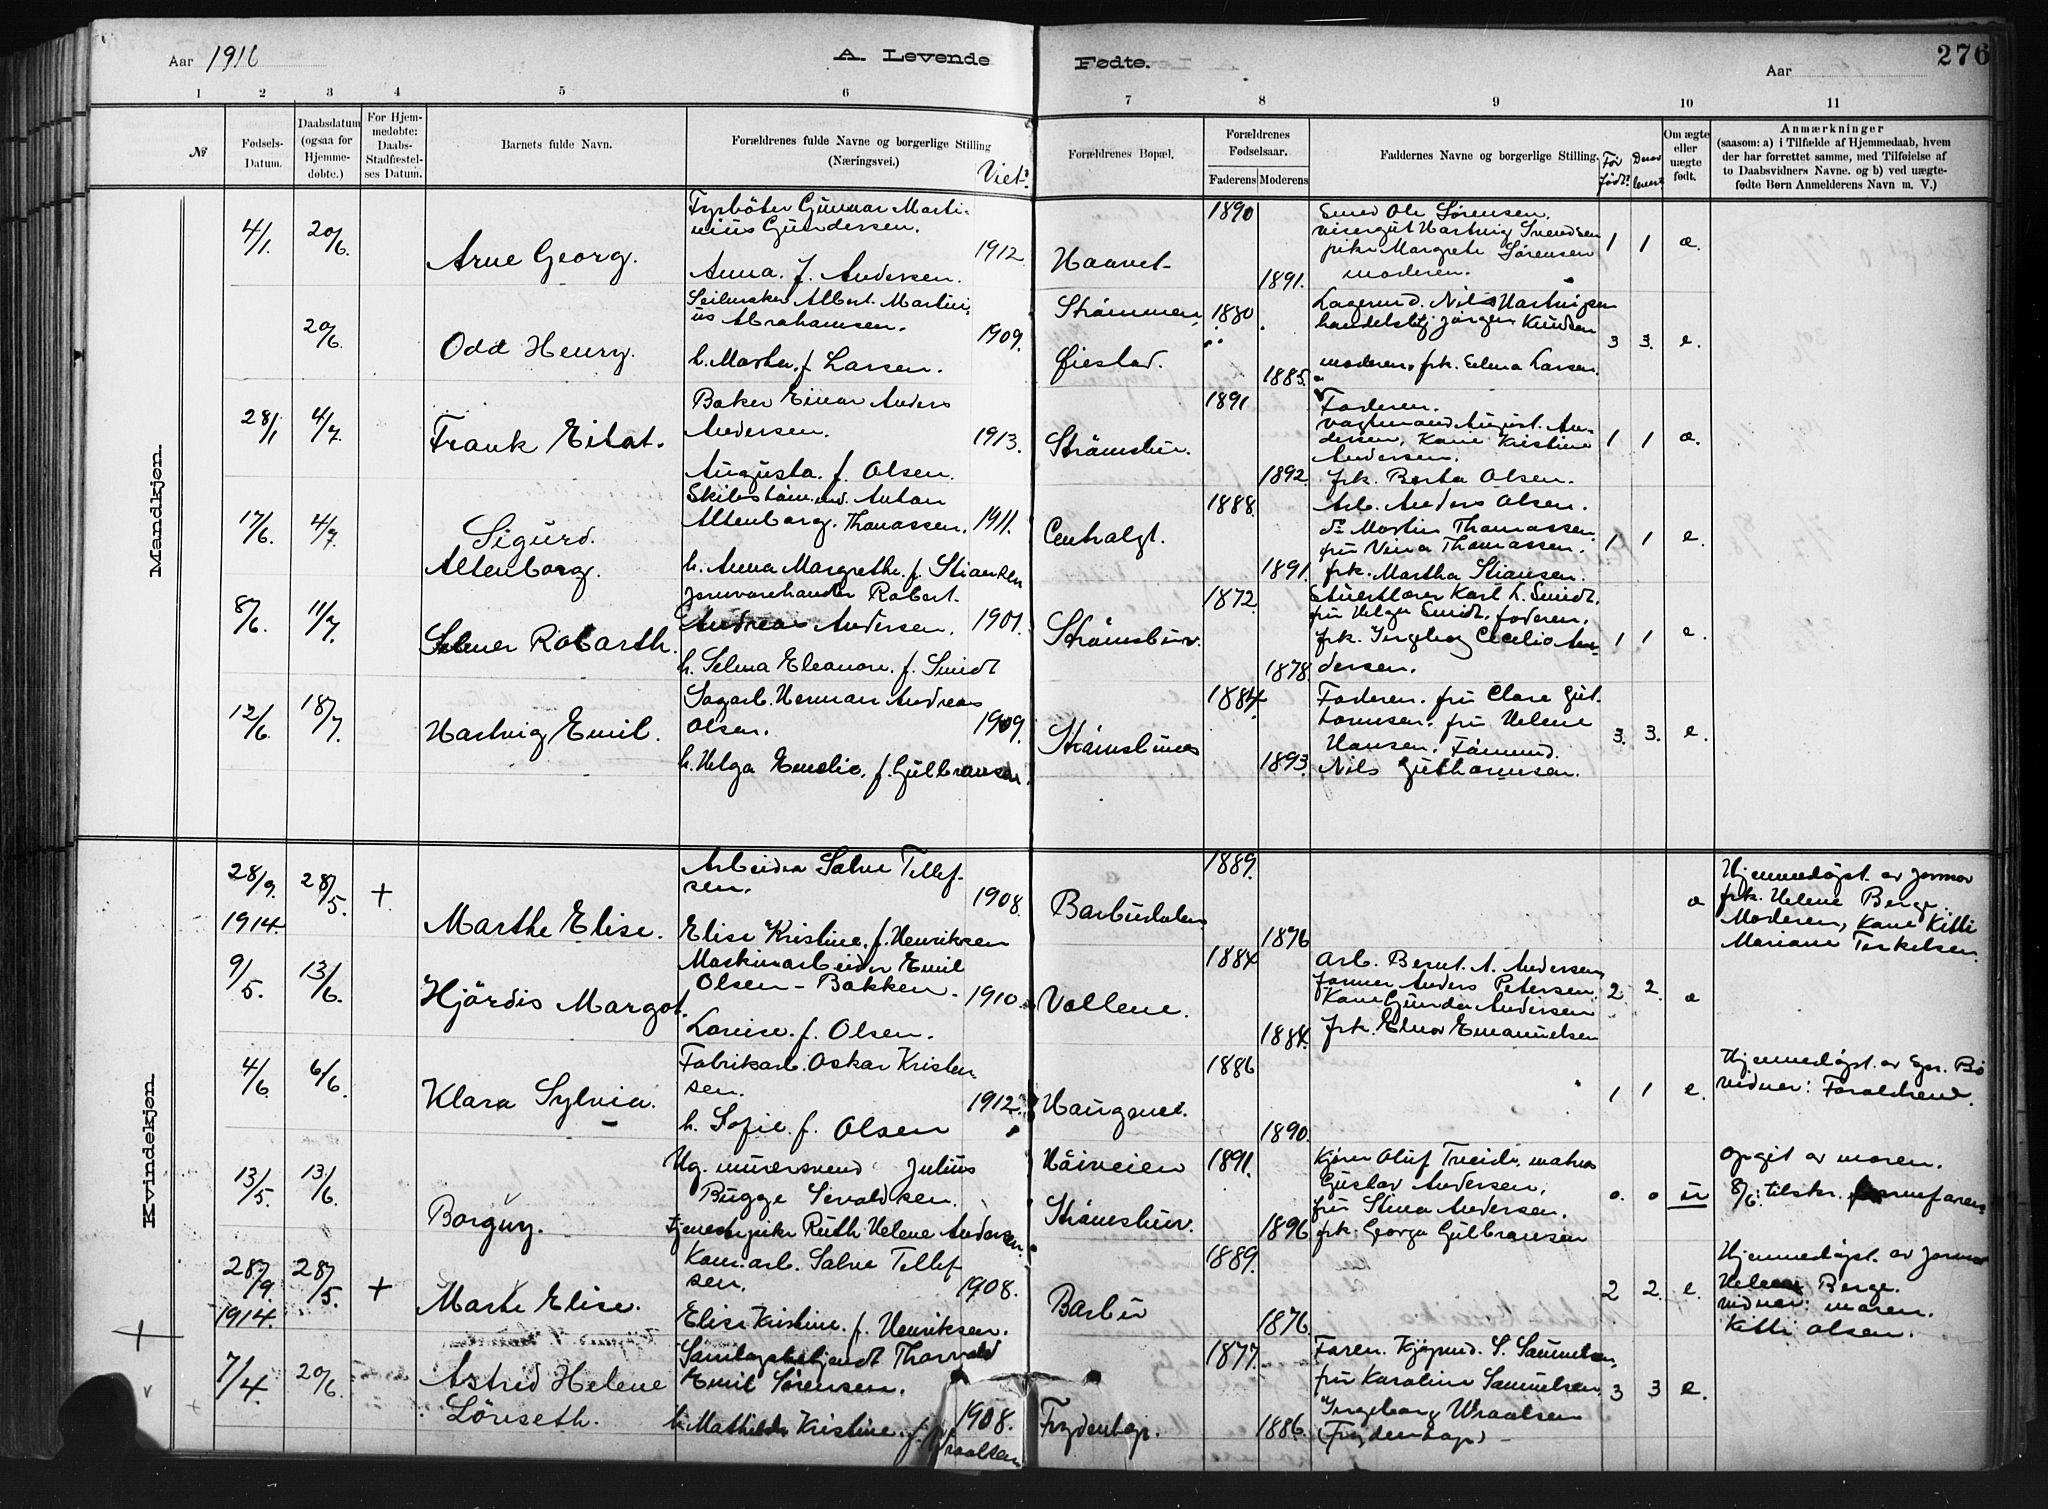 Aar 1916
A. Levende
Fødte.
Aar
276
1 2 3 4 5 6 7 8 9 10 11
№
Fødsels-
Datum.
Daabsdatum
(ogsaa for
Hjemme-
døbte.)
For Hjem-
medøbte:
Daabs-
Stadfæstel-
ses Datum.
Barnets fulde Navn.
Forældrenes fulde Navne og borgerlige Stilling
(Næringsvei.)
Viet.
Forældrenes Bopæl.
Forældrenes
Fødselsaar.
Faderens. Moderens.
Faddernes Navne og borgerlige Stilling.
Før
født.
Derav
levert
Om ægte
eller
uægte
født.
Anmærkninger
(saasom: a) i Tilfælde af Hjemmedaab, hvem
der har forrettet samme, med Tilføielse af
to Daabsvidners Navne. og b) ved uægte-
fødte Børn Anmelderens Navn m. V.)
Mandkjøn.
4/1. 20/6. Arne Georg.
Fyrbøter Gunnar Marti-
nius Gundersen.
Anna. f. Andersen. 1912.
Haavet
1890
1891.
Smed Ole Sørensen.
visergut Hartvig Svendsen
pike Margrete Sørensen
moderen.
1 1 æ.
20/6. Odd Henry.
Albert Martin-
us Abrahamsen.
h. Martha f. Larsen. 1909.
Strømmen,
Øiestad.
1880
1885.
Lagermd. Nils Hartvigsen
handelsbtj. Jørgen Knudsen
moderen, frk. Selma Larsen.
3 3. e.
28/1 4/7. Frank Eilat.
Baker Einar Anders
Andersen.
Augusta. f. Olsen. 1913.
Strømsbu.
1891
1892.
Faderen.
vagtmand August An-
dersen, Kone Kristine
Andersen.
frk. Berta Olsen.
1 1 æ.
17/6. 4/7. Sigurd.
Altenborg.
Skibstøm.md. Anton
Altenborg. Thomassen. 1911.
h. Anna Margrethe. f. Stiansen
Centralgt.
1888.
1891.
Arb. Anders Olsen.
do Martin Thomassen.
fru Vina Thomassen.
frk. Martha Stiansen.
1 1 e.
8/6. 11/7. Selmer Robarth.
Jernvarehandler Robert
Andreas Andersen. 1901.
h. Selma Eleanore. f. Smidt
Strømsbu.
1872.
1878.
Karl L. Smidt.
fru Helga Smidt, faderen.
frk. Ingeborg Cecilie An-
dersen.
1 1 e.
12/6. 18/7. Hartvig Emil.
Sagarb. Herman Andreas
Olsen. 1909.
h. Helga Emelie. f. Gulbransen.
Strømsbunes
1884.
1893.
Faderen. fru Clare Gut-
tormsen. fru Helene
Hansen. Tømmd.
Nils Guthormsen.
3. 3. e.
Kvindekjøn.
28/9.
1914. 28/5. + Marthe Elise.
Arbeider Salve Tellef-
sen. 1908.
Elise Kristine. f. Henriksen
Barbudalen
1889.
1876
æ
Hjemmedøpt. av jormor
frk. Helene Berge.
Moderen, Kone Kitti
Mariane Terkelsen.
9/5. 13/6. Hjördis Margot.
Maskinarbeider Emil
Olsen-Bakken. 1910.
Lovise. f. Olsen.
Vollene.
1884
1884.
Arb. Bernt. A. Andersen,
former Anders Petersen.
Kone Gunda Andersen
frk. Elnor Emanuelsen
2 2. æ
4/6. 6/6. Klara Sylvia.
Fabrikarb. Oskar Kristen-
sen. 1912.
h. Sofie. f. Olsen
Haugenes.
1886
1890.
1 1 e.
Hjemmedøpt. av spr. Bö
vidner: Forældrene.
13/5. 13/6. Borguy.
Ug. murersvend Julius
Bugge Sevaldsen.
Tjenestepike Ruth Helene Andersen.
Håiveien
Strømsbu.
1891.
1896
Oluf Tveide, matros
Gustav Andersen.
fru Stina Andersen.
frk. Georga Gulbransen
o. o u
Opgit av moren.
8/6: tilskr. barnefaren.
28/9.
1914. 28/5. + Marte Elise.
Kom.arb. Salve Tellef
sen. 1908.
Elise Kristine. f. Henriksen.
Barbu
1889.
1876.
2 2. e.
Hjemmedøpt. av jormor
Helene Berge.
vidner: moren.
Kitti Olsen.
7/4. 20/6. Astrid Helene
Lönseth.
Samlagsbetjendt Thorvald
Emil Sørensen.
h. Mathilde Kristine. f. Wraalsen 1908.
Frydenlap.
1877.
1886.
Faren. Kjøpmd. S. Samuelsen,
fru Karoline Samuelsen,
Ingeborg Wraalsen
(Frydenlap)
3 3 e.